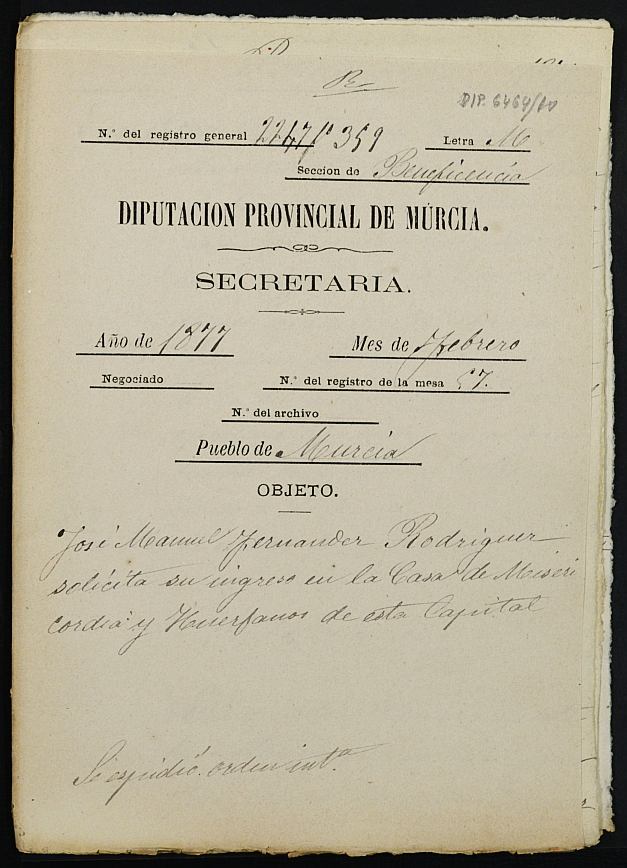 DIP. 6464/10
N.º del registro general 2247 fº 359 Letra M
Seccion de Beneficencia
DIPUTACION PROVINCIAL DE MÚRCIA.
SECRETARIA.
Año de 1877 Mes de Febrero
Negociado N.º del registro de la mesa 57.
N.º del archivo
Pueblo de Murcia
OBJETO.
José Manuel Fernander Rodriguer
solícita su ingreso en la Casa de Miseri
cordia y Huerfanos de esta Capital
Se espidió orden int.ª